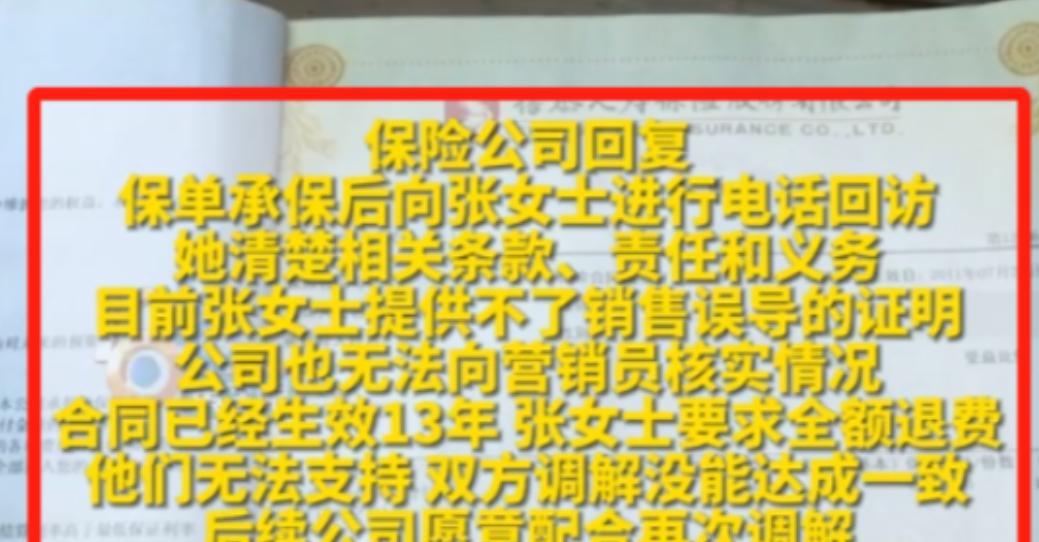 保险公司回复
SURANCE CO.,LTD.
保单承保后向张女士进行电话回访
她清楚相关条款、责任和义务
目前张女士提供不了销售误导的证明
公司也无法向营销员核实情况
合同已经生效13年 张女士要求全额退费
他们无法支持 双方调解没能达成一致
后续公司愿意配合再次调解